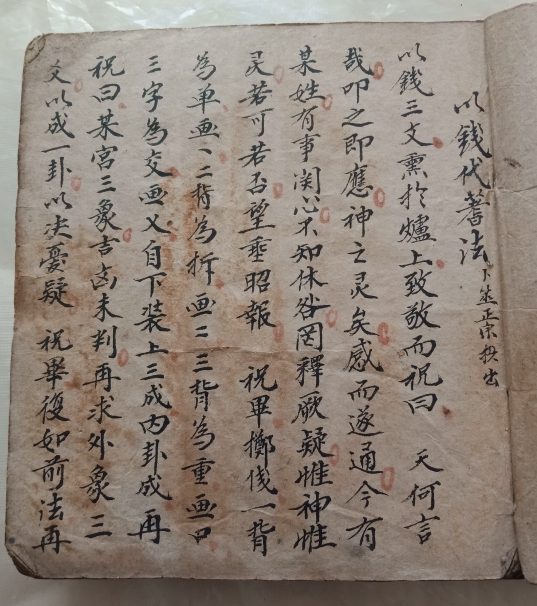 以錢代蓍法 卜筮正宗挍出
以錢三文熏於爐上致敬而祝曰 天何言
哉叩之即應神之灵矣感而遂通今有
某姓有事関心不知休咎罔釋厥疑惟神惟
灵若可若否望垂昭報 祝畢擲伐一背
為单画、二背為拆画二三背為重画口
三字為交画乂自下裝上三成内卦成再
祝曰某宮三象吉凶未判再求外象三
爻以成一卦以决憂疑 祝畢復如前法再